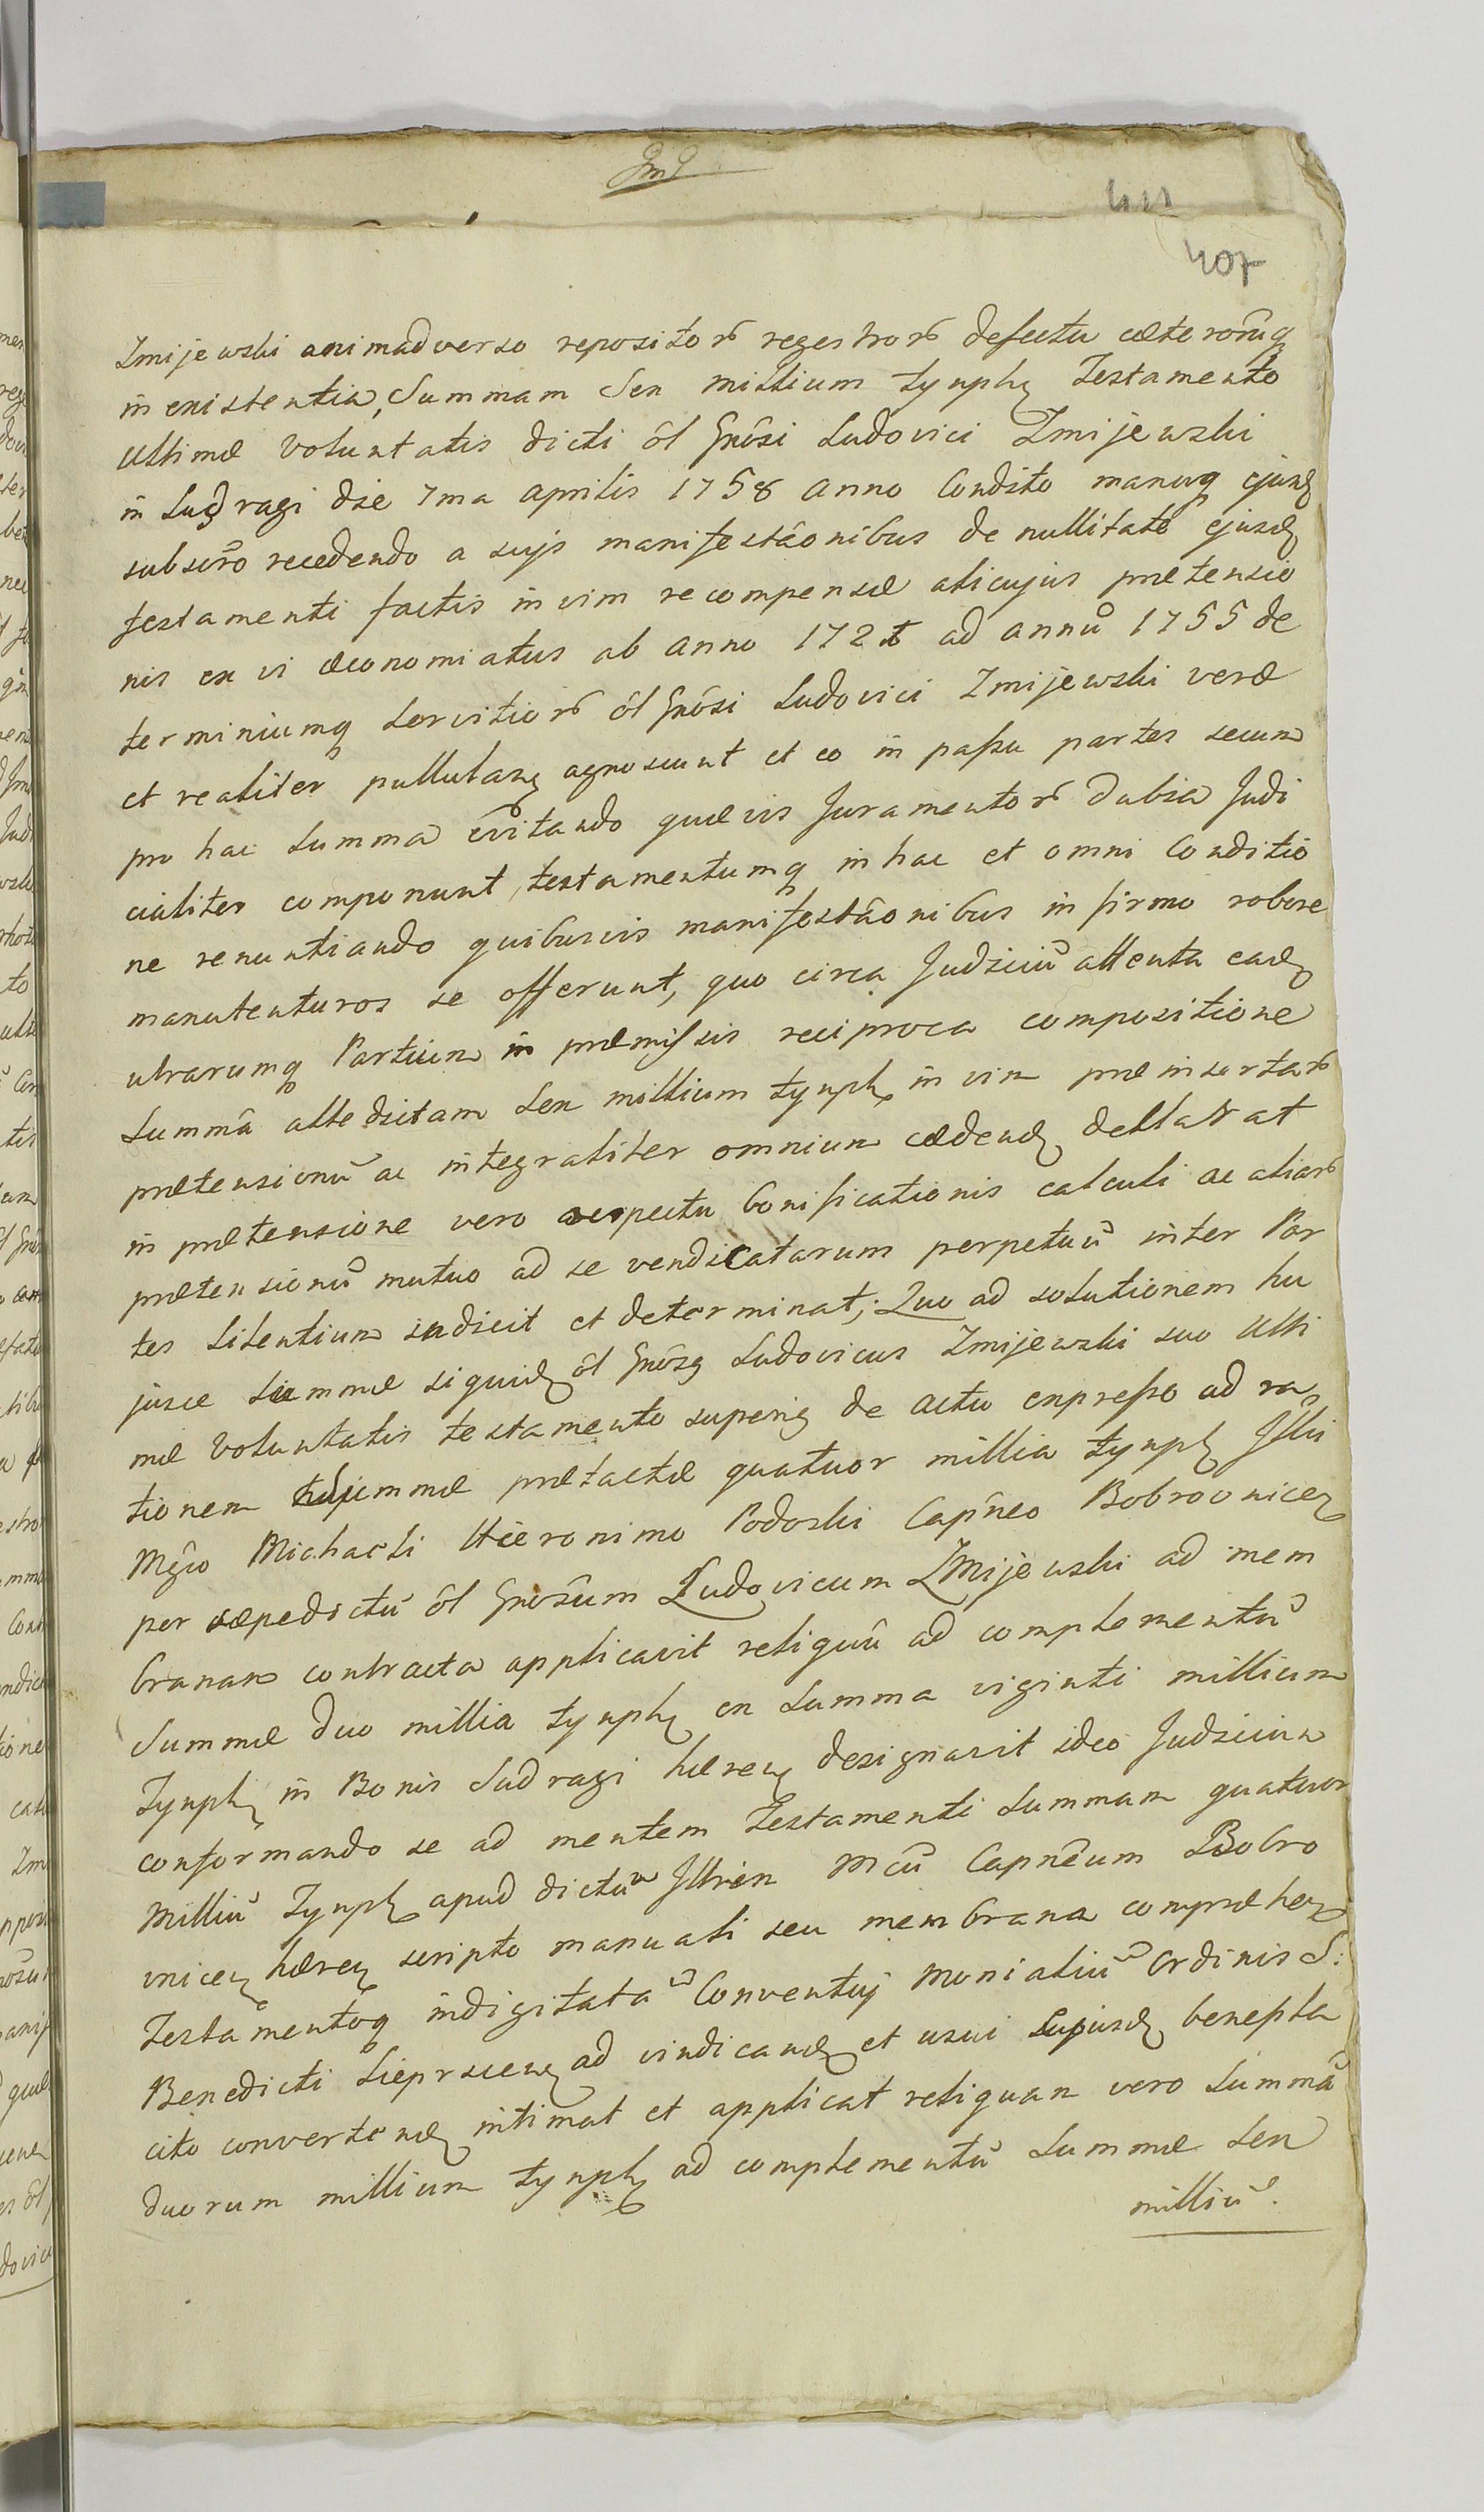 407
Zmijewski animadverso repositor regestror defectu cæterorumq
in existentia, Summam Sex millium tynph Testamento
Ultimæ Voluntatis dicti ol Gnôsi Ludovici Zmijewski
in Sudragi die 7ma Aprilis 1758 Anno Condito manuq ejusd
subscro recedendo a sujs manifestâonibus de nullitate ejusd
testamenti factis in vim recompensæ alicujus prætensio
nis ex vi œconomiatus ab Anno 172 ad Annū 1755 de
terminiumq servitior ôl Gnôsi Ludovici Zmijewski veræ
et realiter pullulan agnoscunt et eo in passu partes secum
pro hac summa evitando quævis Juramentor dubia Judi
cialiter componunt, testamentumq in hac et omni Conditio
ne renuntiando quibusvis manifestâonibus in firmo robore
manutenturos se offerunt, quo circa Judiciū attenta ead
utrarumq Partium in præmissis reciproca compositione
Summâ attedictam sex millium tynph in vim præinsertar
prætensionū ac integraliter omnium cædend declarat
in prætensione vero respectu bonificationis calculi ac aliar
prætensionū mutuo ad se vendicatarum perpetuū inter Par
tes litentium indicit et determinat; Quo ad solutionem hu
jusce summæ siquid ôl Gnôsg Ludovicus Zmijewski suo Ulti
mæ Voluntatis testamento superig de actu expresso ad ra
tionem summæ prætactæ quatuor millia tynph Illri
Mgco Michaeli Hieronimo Podoski Capneo Bobrovnicen
per sæpedictū ôl Gnôsum Ludovicum Zmijewski ad mem
branam contracta applicavit reliquū ad complementū
Summæ duo millia tynph ex Summa viginti millium
Tynph in Bonis Sudragi hæren designavit ideo Judicium
conformando se ad mentem Testamenti Summam quatuor
Milliū Tynph apud dictum Illrem Mcū Capneum Bobro
vnicen hæren scripto manuali seu membrana compræhen
Testamentoq indigitata Conventuj Monialiū Ordinis S:
Benedicti Sieprscen ad vindicand et usui ejusd benepla
cito convertend intimat et applicat reliquam vero Summā
duorum millium tynph ad complementū Summæ sex
milliū.